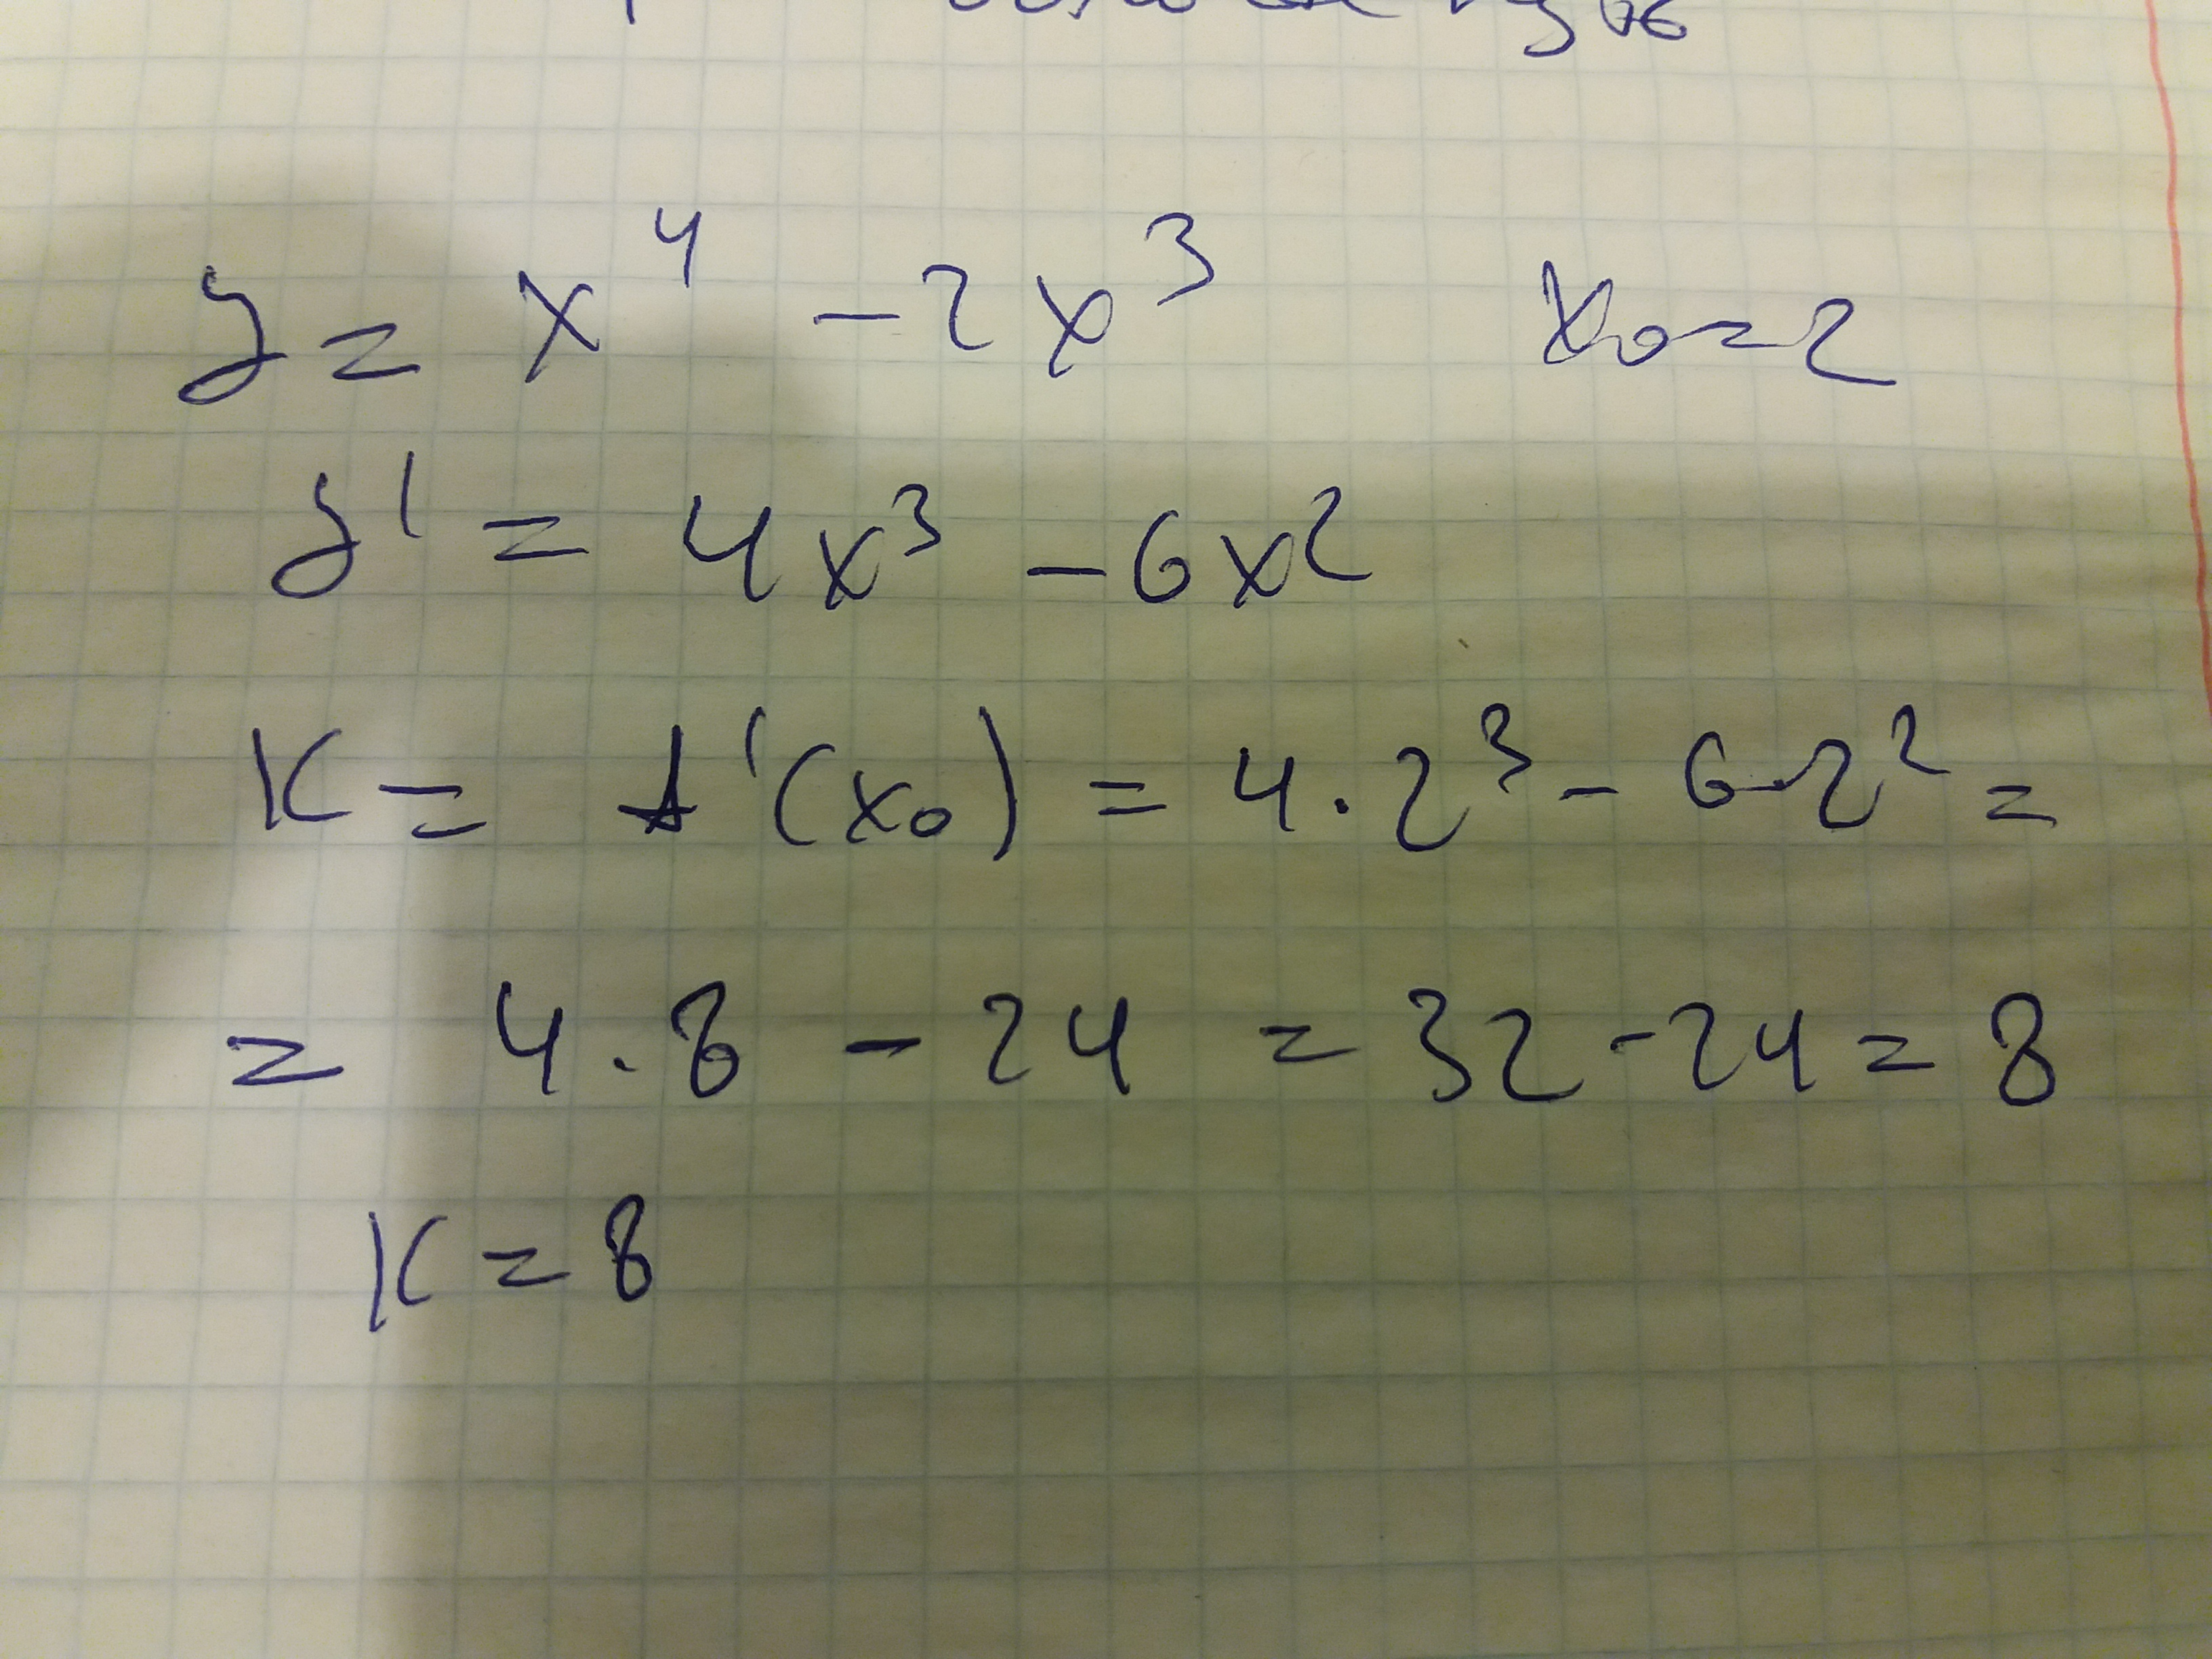 y = x⁴ - 2x³ x₀ = 2
y' = 4x³ - 6x²
K = f'(x₀) = 4 · 2³ - 6 · 2² =
= 4 · 8 - 24 = 32 - 24 = 8
K = 8